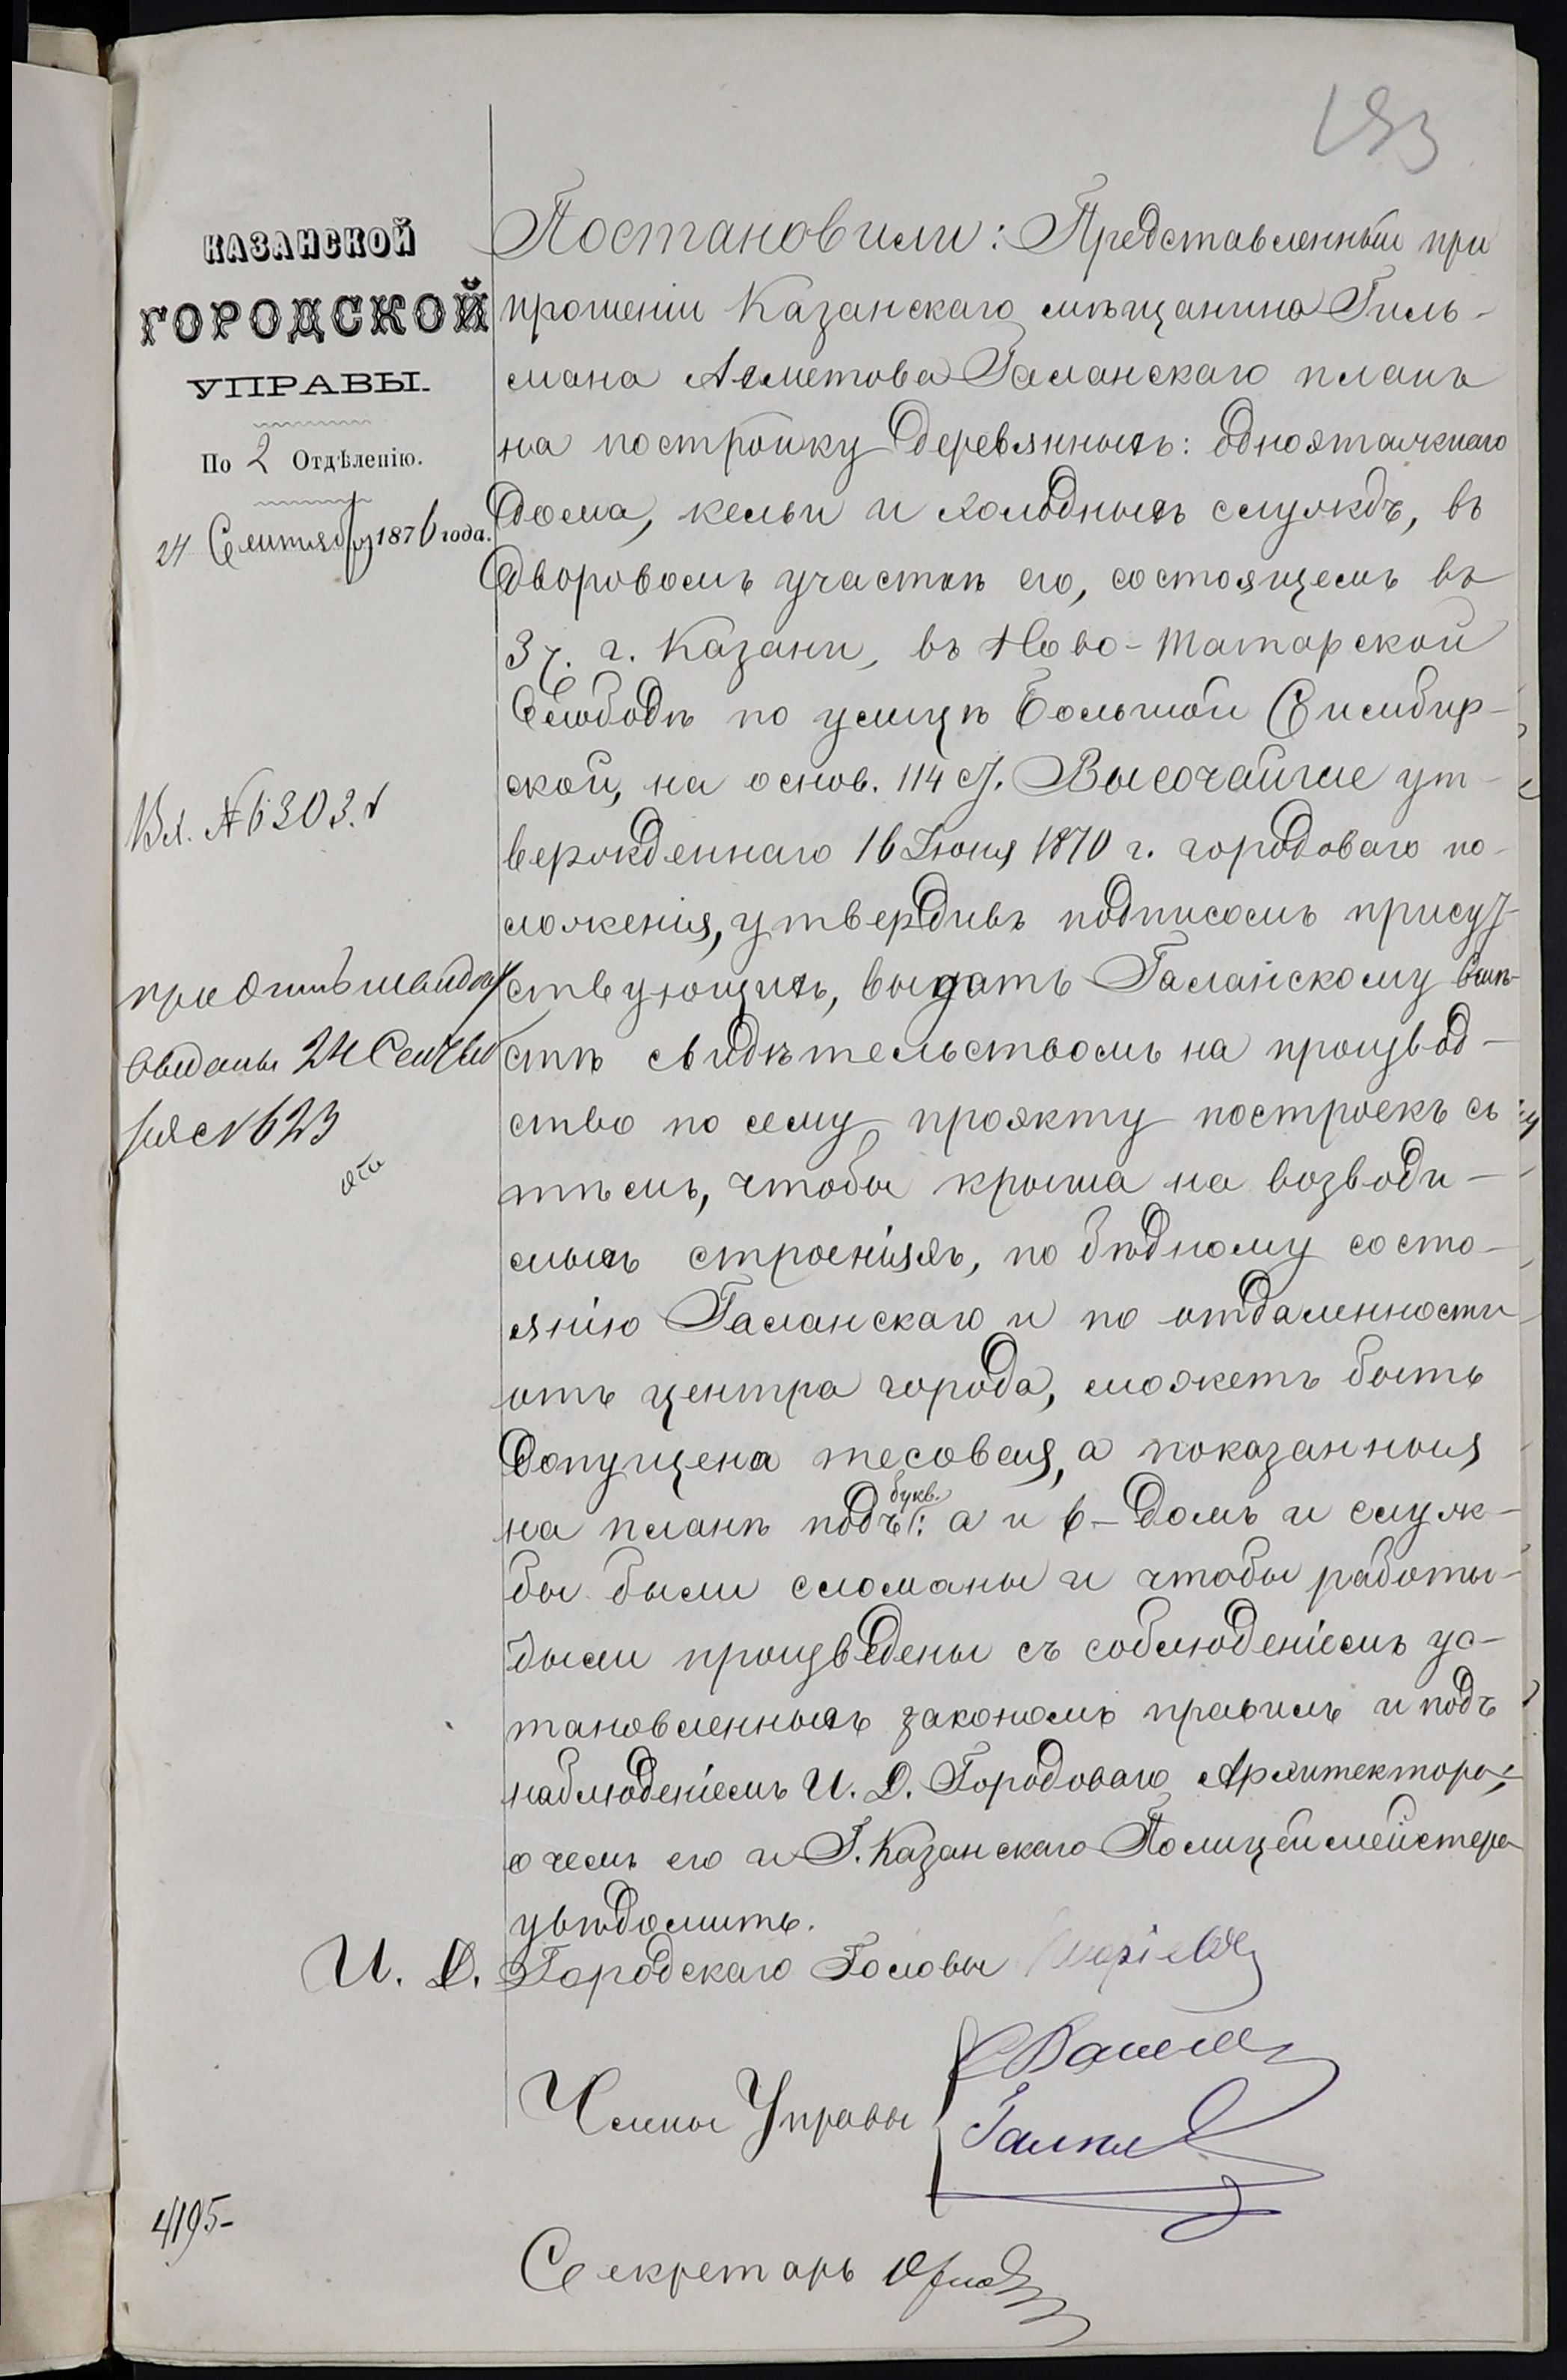 193
КАЗАНСКОЙ
ГОРОДСКОЙ
УПРАВЫ.
По 2 Отдѣленію.
24 Сентября 1876 года.
Вх. № 6303.
выданы 24 Сентяб
ря с № 623
Постановили: Представленный при
прошеніи Казанскаго мѣщанина Гиль-
мана Ахметова Галанскаго планъ
на постройку деревянныхъ: одноэтажнаго
дома, кельи и холодныхъ службъ, въ
дворовомъ участкѣ его, состоящемъ въ
3 ч. г. Казани, въ Ново-Татарской
Слободѣ по улицѣ Большой Симбир-
ской, на основ. 114 ст. Высочайше ут-
вержденнаго 16 Іюня 1870 г. городоваго по-
ложенія, утвердивъ подписомъ присут-
ствующихъ, выдать Галанскому вмѣ-
стѣ свидѣтельствомъ на производ-
ство по сему проэкту построекъ съ
тѣмъ, чтобы крыша на возводи-
мыхъ строеніяхъ, по бѣдному состо-
янію Галанскаго и по отдаленности
отъ центра города, можетъ быть
допущена тесовая, а показанныя
на планѣ подъ букв.: а и в - домъ и служ-
бы были сломаны и чтобы работы
были произведены съ соблюденіемъ ус-
тановленныхъ закономъ правилъ и подъ
наблюденіемъ И. Д. Городоваго Архитектора;
о чемъ его и Г. Казанскаго Полицеймейстера
увѣдомить.
И. Д. Городскаго Головы
Члены Управы
Галки
Секретарь
4195-